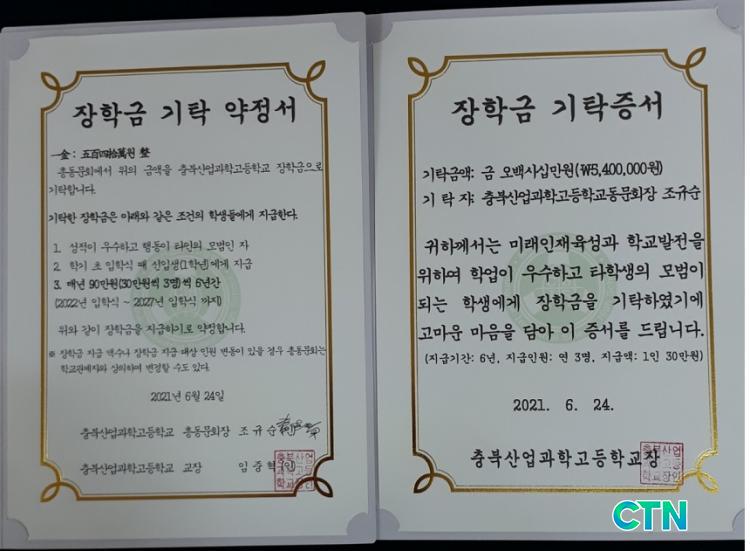 장학금 기탁 약정서
一金: 五百四拾萬원 整
총동문회에서 위의 금액을 충북산업과학고등학교 장학금으로
기탁합니다.
기탁한 장학금은 아래와 같은 조건의 학생들에게 지급한다.
1. 성적이 우수하고 행동이 타인의 모범인 자
2. 학기 초 입학식 때 신입생(1학년)에게 지급
3. 매년 90만원(30만원씩 3명)씩 6년간
(2022년 입학식 ~ 2027년 입학식 까지)
위와 같이 장학금을 지급하기로 약정합니다.
※ 장학금 지급 액수나 장학금 지급 대상 인원 변동이 있을 경우 총동문회는
학교관계자와 상의하여 변경할 수도 있다.
2021년 6월 24일
충북산업과학고등학교 총동문회장 조규순
충북산업과학고등학교 교장 임중혁(인)
장학금 기탁증서
기탁금액: 금 오백사십만원(₩5,400,000원)
기 탁 자: 충북산업과학고등학교동문회장 조규순
귀하께서는 미래인재육성과 학교발전을
위하여 학업이 우수하고 타학생의 모범이
되는 학생에게 장학금을 기탁하였기에
고마운 마음을 담아 이 증서를 드립니다.
(지급기간: 6년, 지급인원: 연 3명, 지급액: 1인 30만원)
2021. 6. 24.
충북산업과학고등학교장
CTN